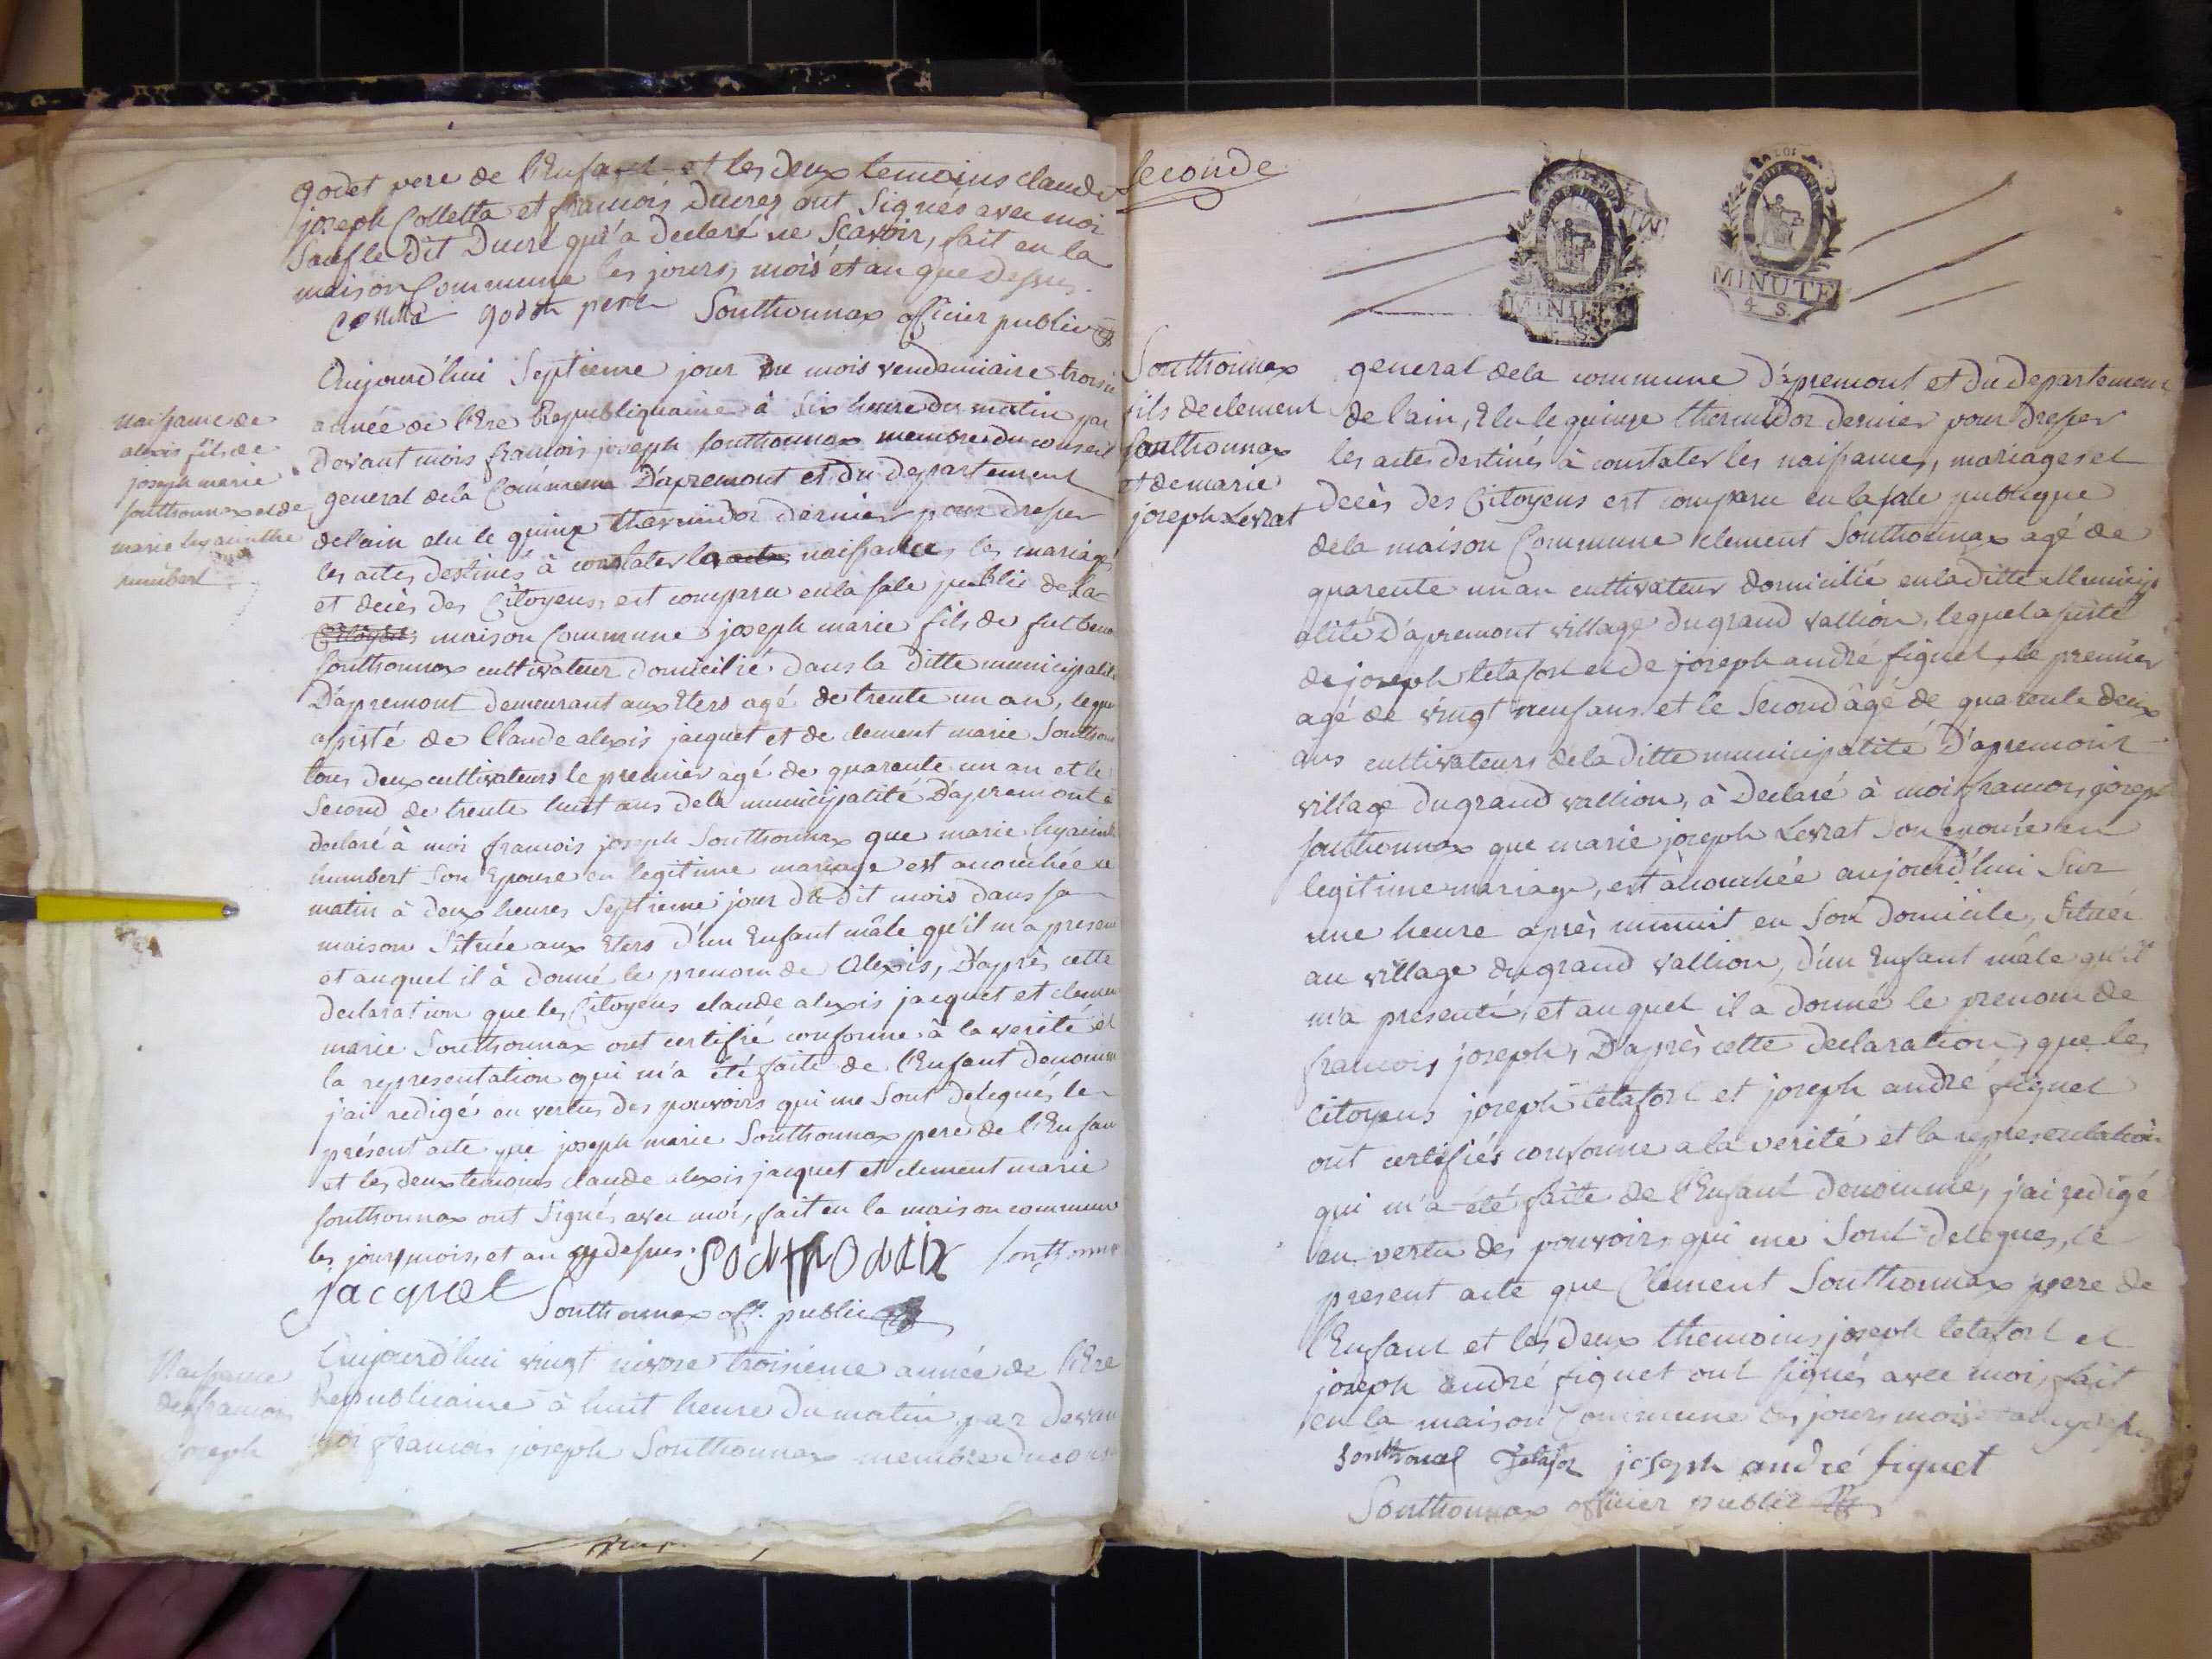 godet pere de l'Enfant et les deux temoins claude
joseph Colletta et francois Ducrez ont Signés avec moi
Sauf le Dit Ducré qui a declaré ne Scavoir, fait en la
maison Commune les jours, mois et an que Dessus.
Colletta godet pere Southonnax officier public
naissance de
alexis fils de
joseph marie
southonnax et de
marie hyacinthe
humbert
Aujourd'hui Septieme jour Du mois vendemiaire troisie
année de l'Ere Republiquaine à Six heure du matin par
Devant mois francois joseph Southonnax membre du conseil
general dela Commune D'apremont et du Departement
delain elu le quinze thermidor dernier pour dresser
les actes destinés à constater les actes naissances, les mariages
et decès des Citoyens, est comparu en la sale public de la
Citoyens maison Commune joseph marie fils de fut beno
Southonnax cultivateur domicilié dans la ditte municipalit
D'apremont demeurant aux Eters agé de trente un an, leque
assisté de Claude alexis jacquet et de clement marie Southon
tous deux cultivateurs le premier agé de quarente un an et le
Second de trente huit ans dela municipalité D'apremont a
declaré à moi francois joseph Southonnax que marie hyacint
humbert Son Epouse en legitime mariage est accouchée ce
matin à deux heures Septieme jour du dit mois dans sa
maison Située aux Eters d'un Enfant mâle qu'il m'a presen
et auquel il à donné le prenom de Alexis, D'après cette
declaration que les Citoyens claude alexis jacquet et clemen
marie Southonnax ont certifié conforme à la verité et
la representation qui m'a été faite de l'Enfant denomm
j'ai redigé en vertu des pouvoirs qui me Sont delegués le
présent acte que joseph marie Southonnax pere de l'Enfan
et les deux temoins claude alexis jacquet et clement marie
Southonnax ont Signés avec moi, fait en la maison commune
les jour, mois, et an cy dessus.
jacquet Southonnax
Southonnax off. public
Naissance
de francois
joseph
Aujourd'hui vingt nivose troisieme année de l'Ere
Republicaine à huit heure du matin par devan
moi francois joseph Southonnax membre du cons
Seconde
MINUTE
4 S.
MINUTE
4 S.
Southonnax
fils de clement
Southonnax
et de marie
joseph Levrat
general dela commune d'apremont et du departement
de l'ain, Elu le quinze thermidor dernier pour dresser
les actes destinés à constater les naissances, mariages et
decès des Citoyens est comparu en la sale publique
dela maison Commune clement Southonnax agé de
quarente un an cultivateur domicilié en la ditte Municip
alité D'apremont village du grand vallion, lequel assisté
de joseph letafort et de joseph andré figuet, le premier
agé de vingt neuf ans et le Second âgé de quarente deux
ans cultivateurs dela ditte municipalité D'apremont
village du grand vallion, à Declaré à moi francois joseph
Southonnax que marie joseph Levrat Son epouse en
legitime mariage, est accouchée aujourd'hui Sur
une heure après minuit en Son domicile, Situé
au village du grand vallion, d'un Enfant mâle qu'il
m'a presenté, et auquel il a donné le prenom de
francois joseph, D'après cette declaration, que les
Citoyens joseph letafort et joseph andré figuet
ont certifiés conforme a la verité et la representation
qui m'a été faite de l'Enfant denommé, j'ai redigé
en vertu des pouvoirs qui me Sont delegues, le
present acte que Clement Southonnax pere de
l'Enfant et les deux themoins joseph letafort et
joseph andré figuet ont signés avec moi, fait
en la maison Commune les jours mois et an
Southonax letafor joseph andré figuet
Southonnax officier public